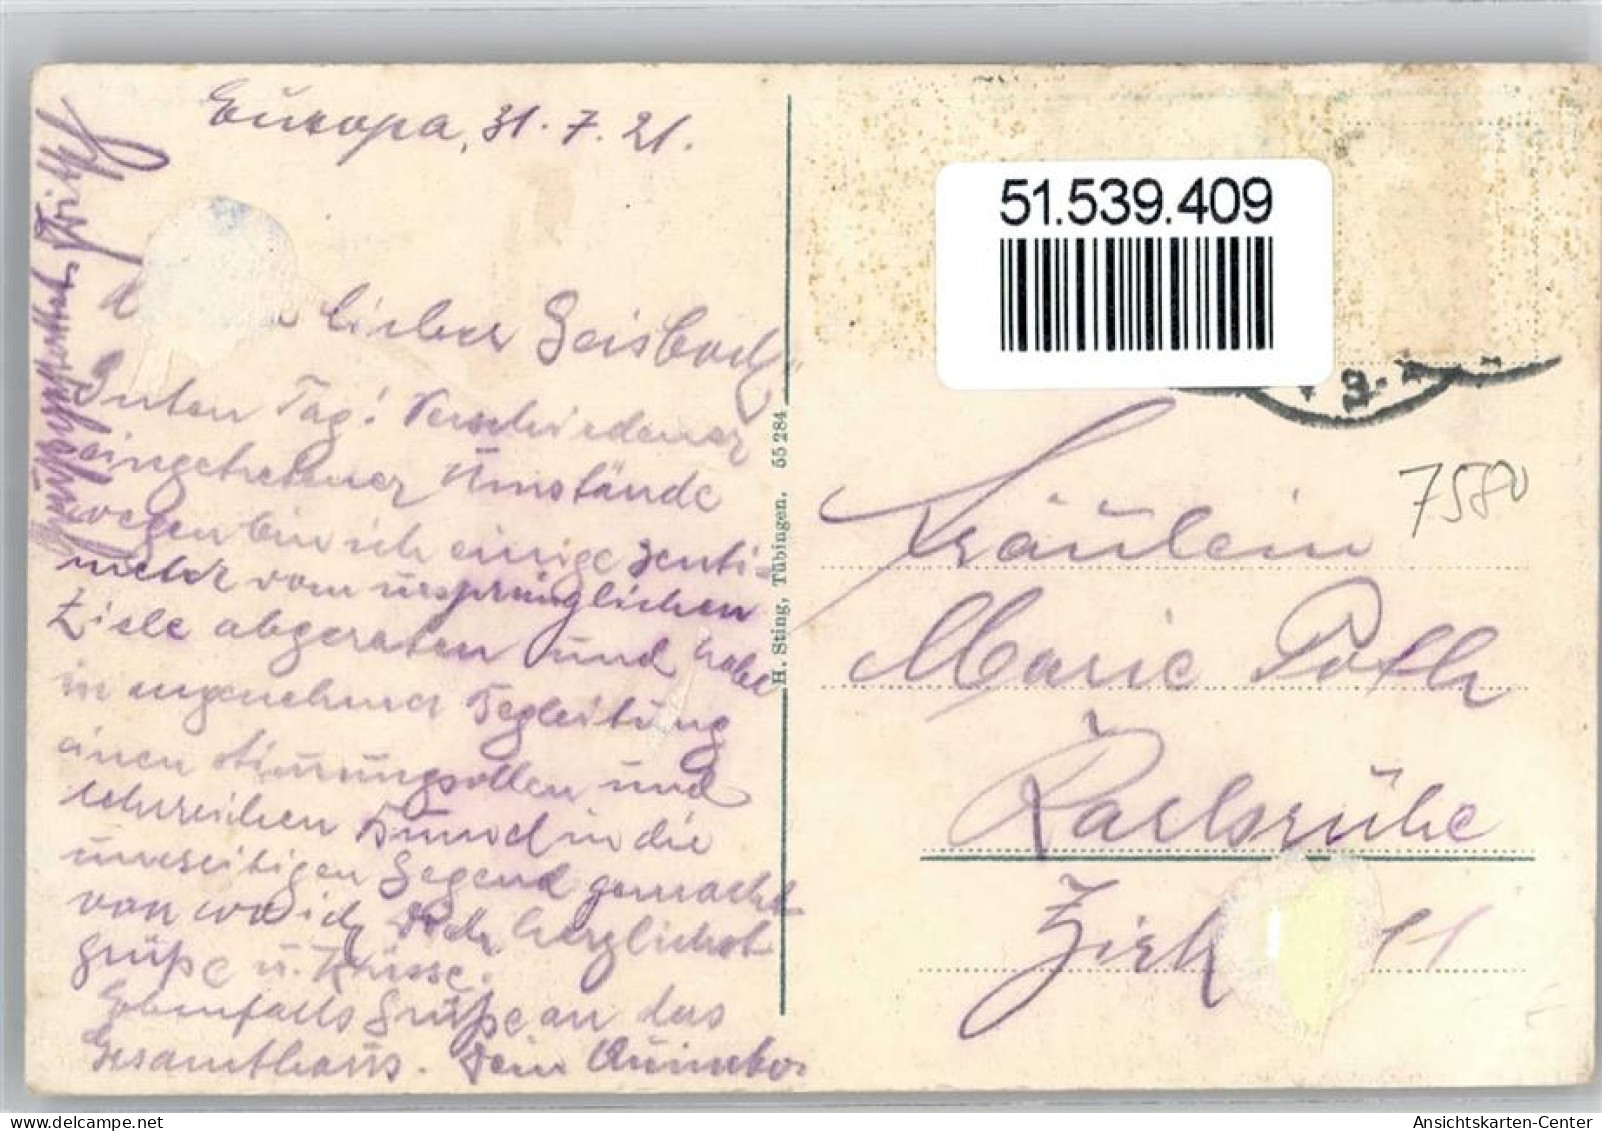 Europa, 31.7.21.
lieber Geisbock!
Guten Tag! Verschiedener
eingetretener Umstände
wegen bin ich einige Zenti-
meter vom ursprünglichen
Ziele abgeraten und habe
in angenehmer Begleitung
einen stimmungsvollen und
lehrreichen Bummel in die
hiesige Gegend gemacht
von wo ich Dich herzlichst
grüße u. küsse.
Ebenfalls Grüße an das
Gesamthaus. Dein
H. Sting, Tübingen. 55 284
51.539.409
7580
Fräulein
Marie Poth
Karlsruhe
Zirk 11
Ansichtskarten-Center